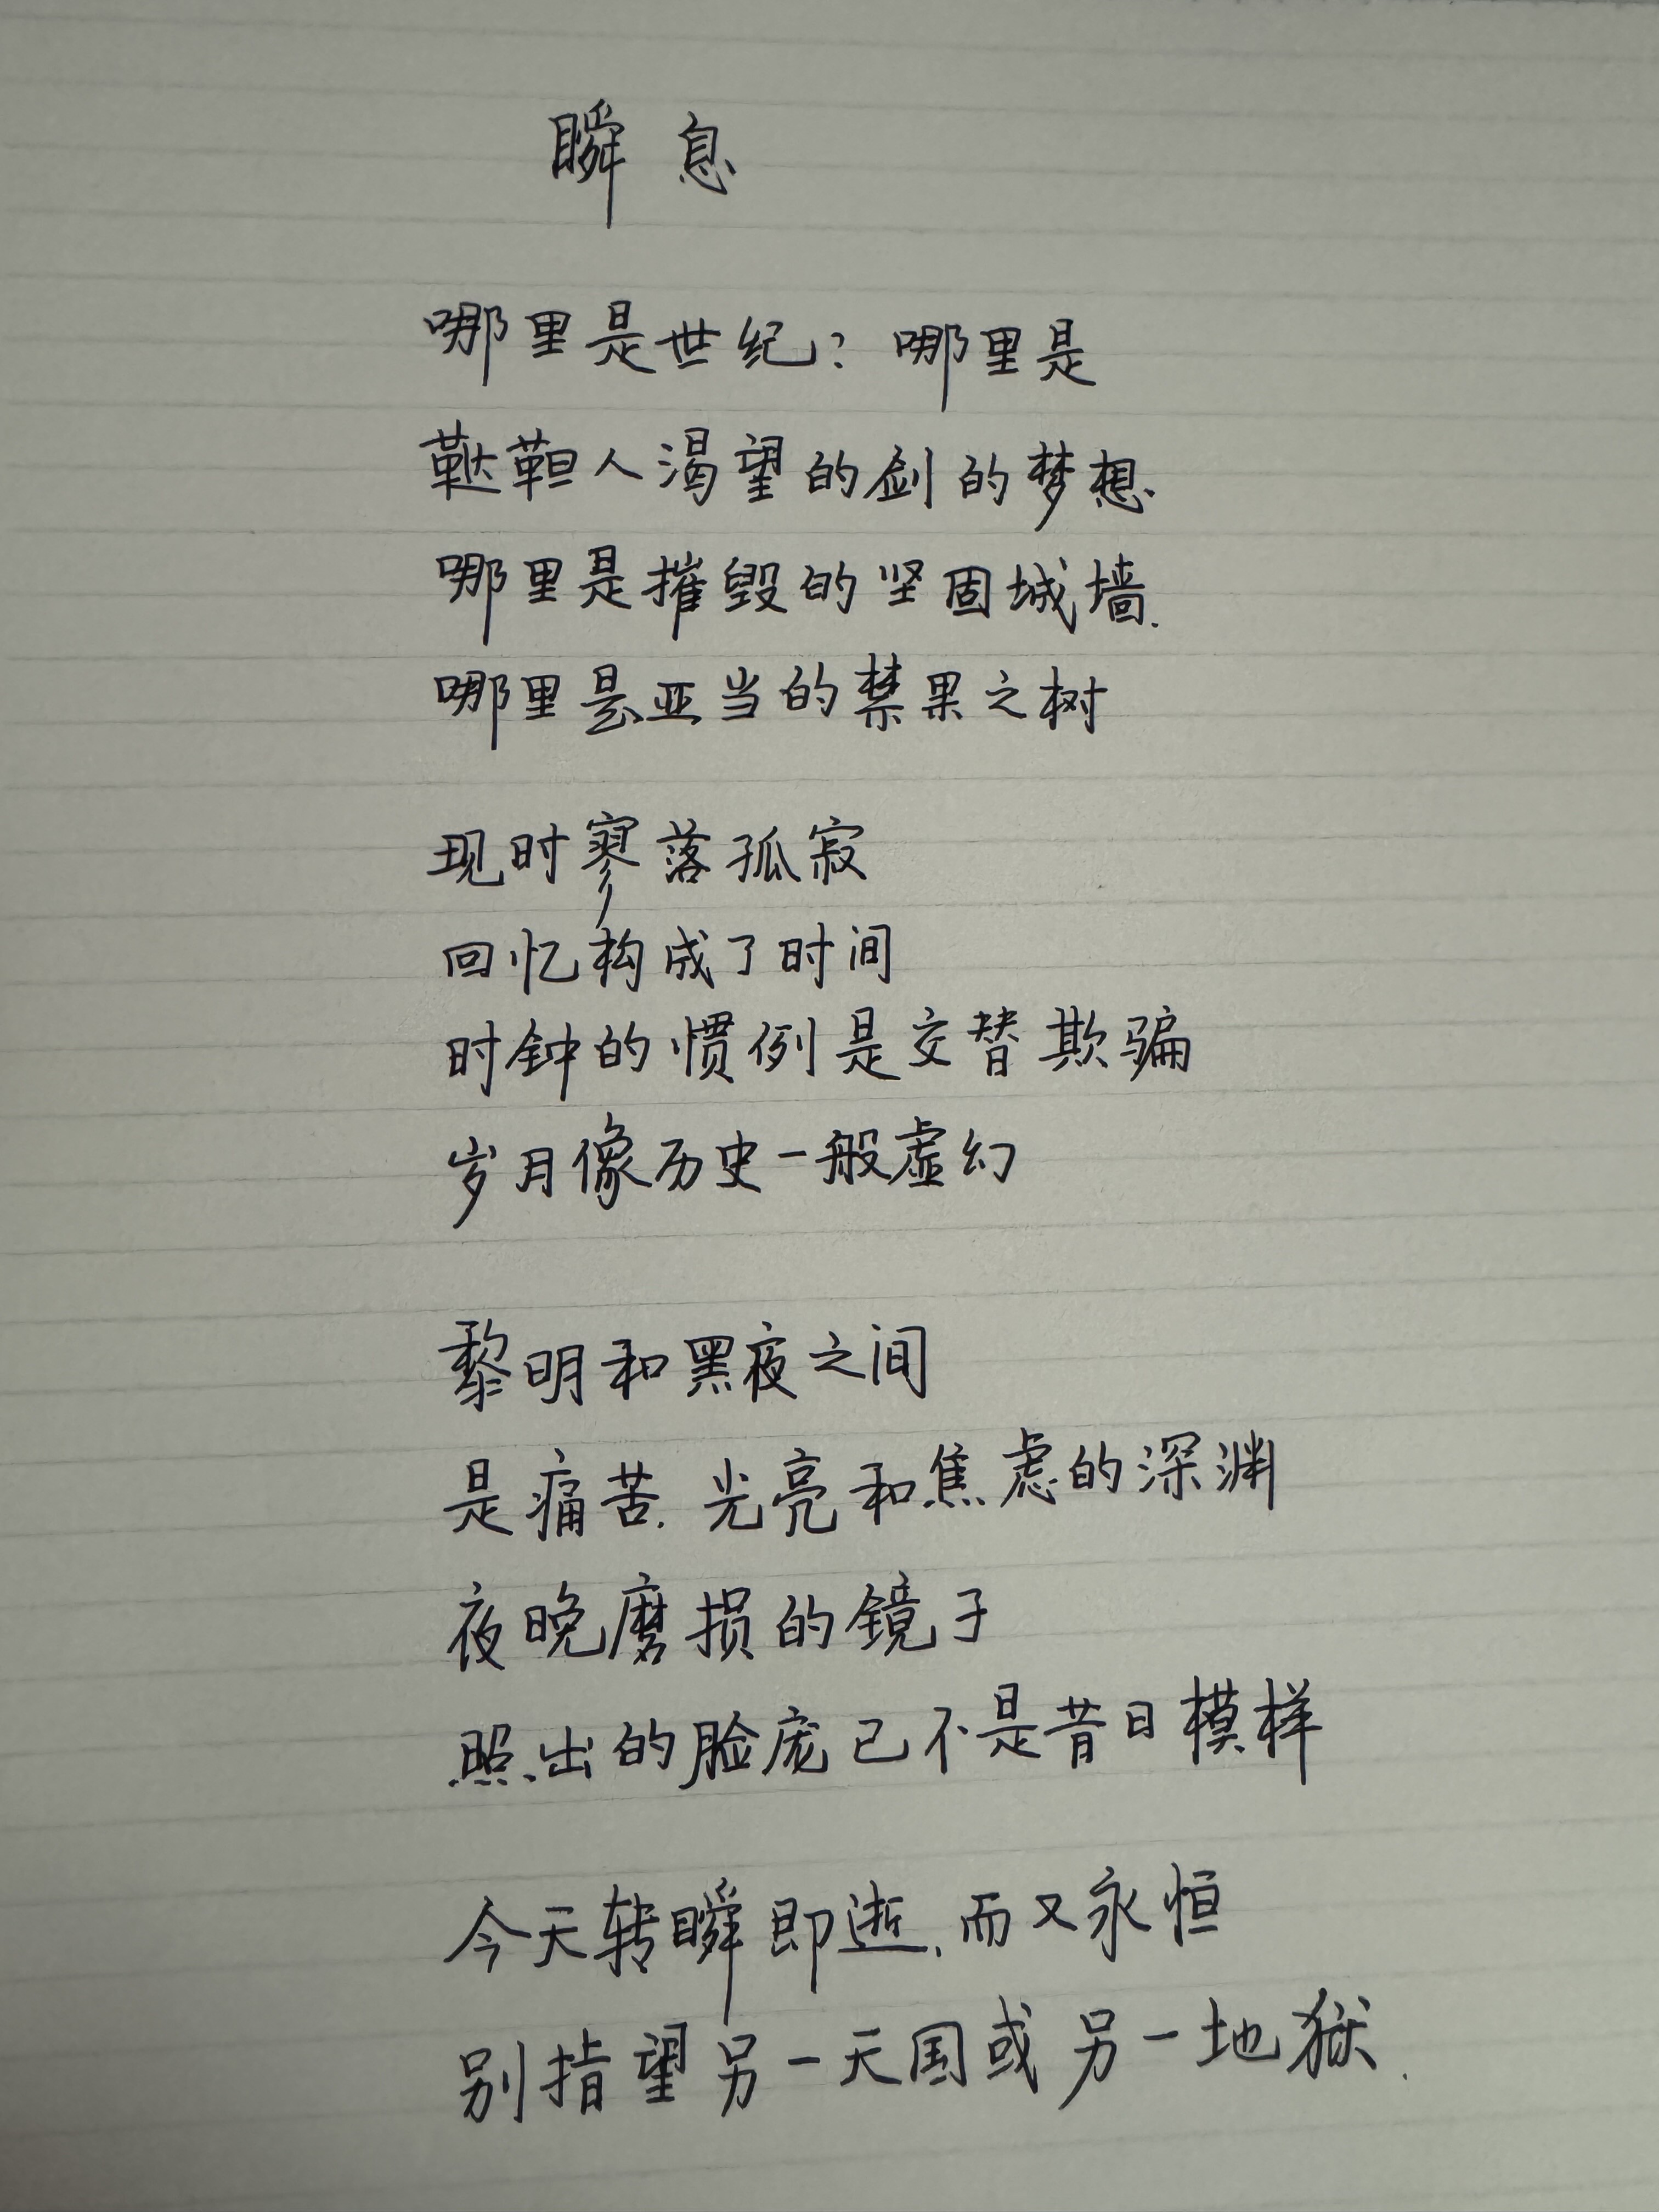 瞬息
哪里是世纪？哪里是
鞑靼人渴望的剑的梦想
哪里是摧毁的坚固城墙.
哪里是亚当的禁果之树
现时寥落孤寂
回忆构成了时间
时钟的惯例是交替欺骗
岁月像历史一般虚幻
黎明和黑夜之间
是痛苦.光亮和焦虑的深渊
夜晚磨损的镜子
照出的脸庞已不是昔日模样
今天转瞬即逝,而又永恒
别指望另一天国或另一地狱.